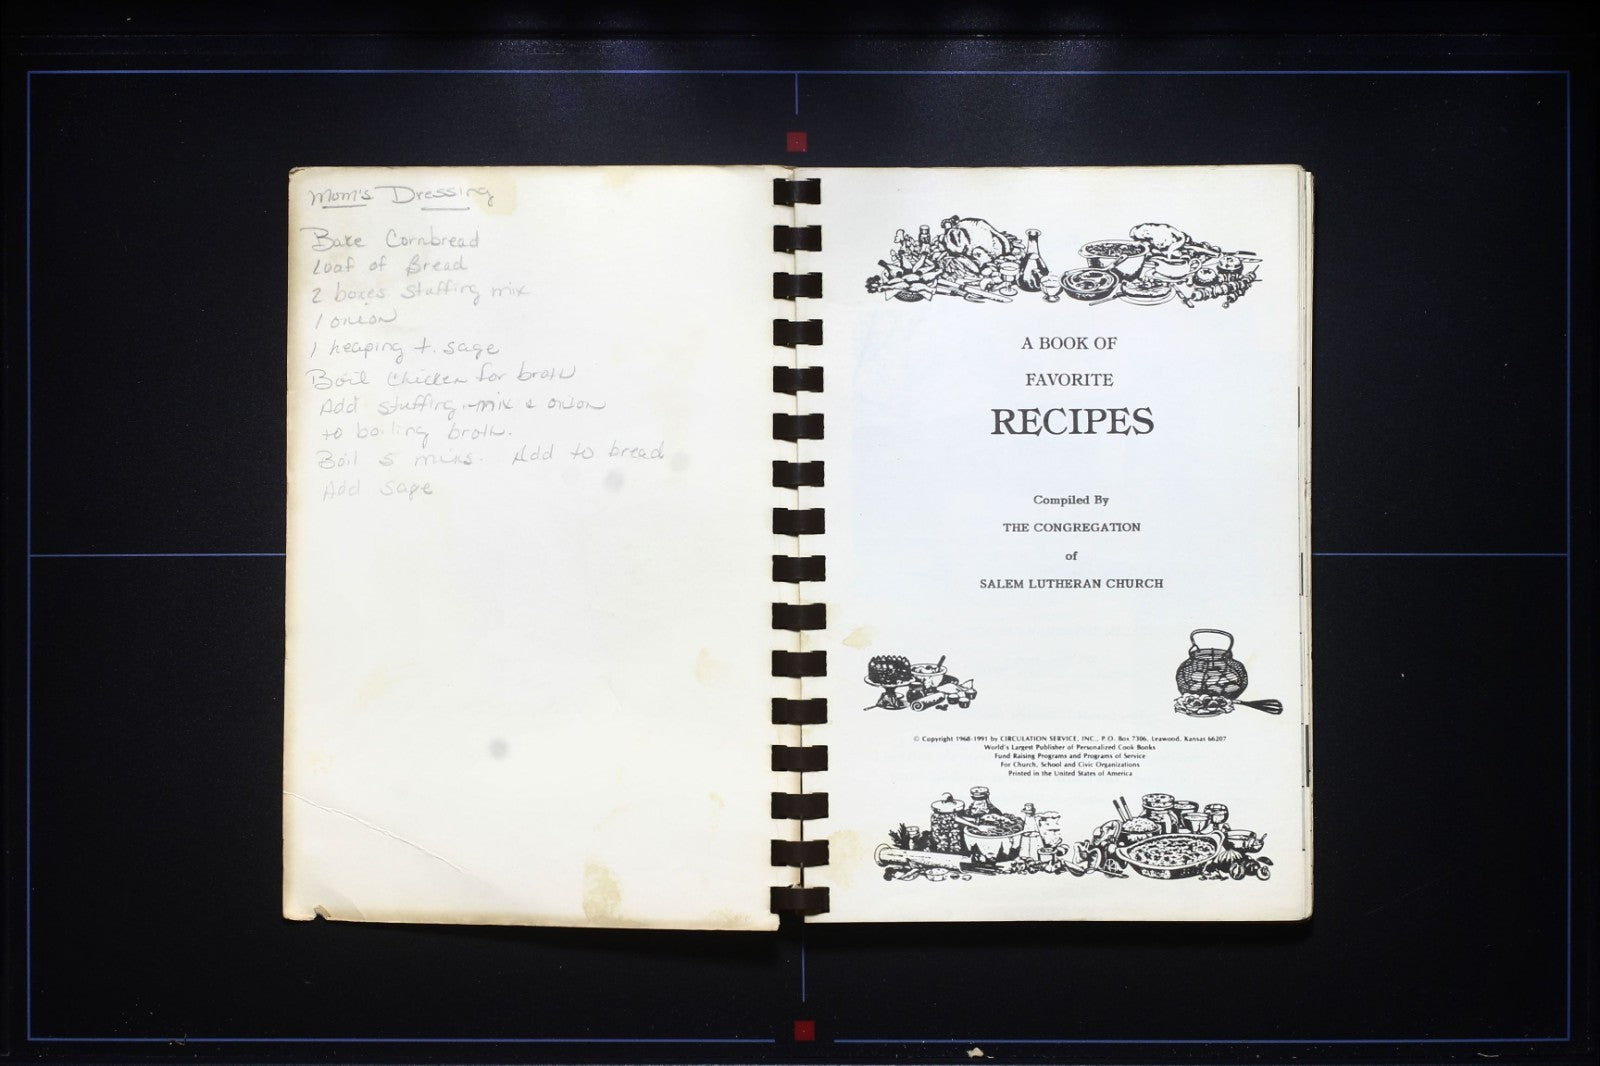 Mom's Dressing
Bake Cornbread
Loaf of Bread
2 boxes stuffing mix
1 onion
1 heaping t. sage
Boil Chicken for broth
Add stuffing mix & onion
to boiling broth.
Boil 5 mins. Add to bread
Add sage
A BOOK OF
FAVORITE
RECIPES
Compiled By
THE CONGREGATION
of
SALEM LUTHERAN CHURCH
© Copyright 1968-1991 by CIRCULATION SERVICE, INC., P.O. Box 7306, Leawood, Kansas 66207
World's Largest Publisher of Personalized Cook Books
Fund Raising Programs and Programs of Service
For Church, School and Civic Organizations
Printed in the United States of America